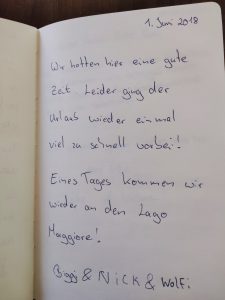 1. Juni 2018
Wir hatten hier eine gute
Zeit. Leider ging der
Urlaub wieder einmal
viel zu schnell vorbei!
Eines Tages kommen wir
wieder an den Lago
Maggiore!
& Nick & Wolfi